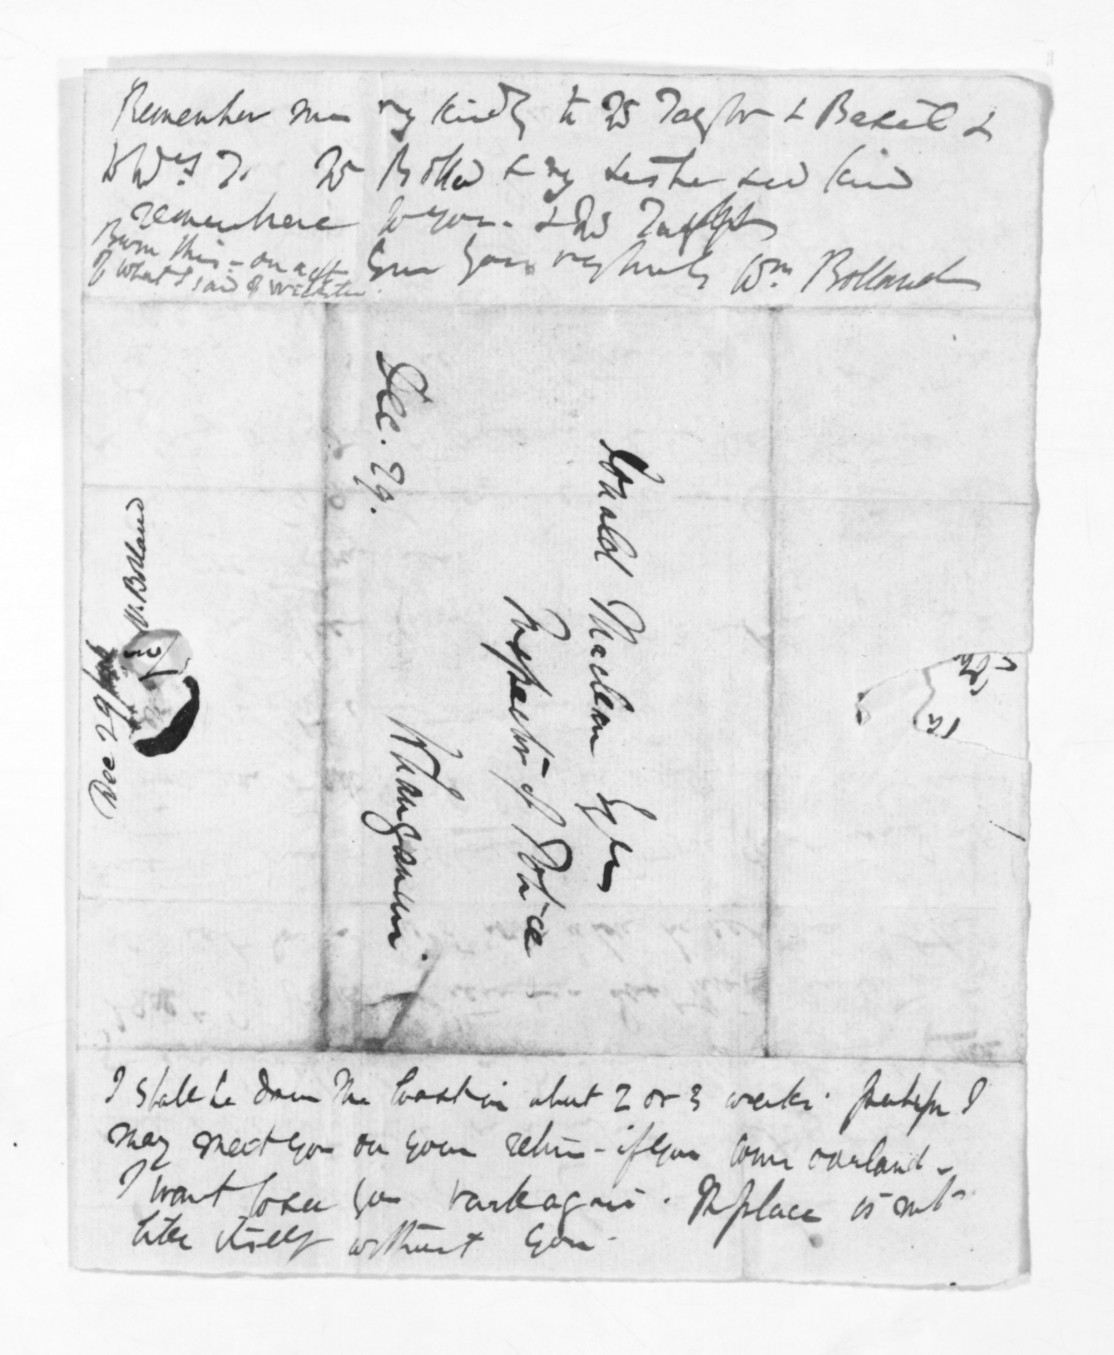 Remember me very kindly to Mr Taylor & Basil &
to Mrs T. Mrs Bolland & my sister send kind
remembrance to you. & Mrs
Burn this - on acct
of what I said of
Ever yours very truly Wm Bolland
Dec. 29.
Donald Maclean Esqre
Inspector of Police
Whanganui.
W. Bolland
Dec 29
I shall be down the Coast in about 2 or 3 weeks. perhaps I
may meet you on your return - if you come overland -
I want to see you back again. The place is not
like itself without you.